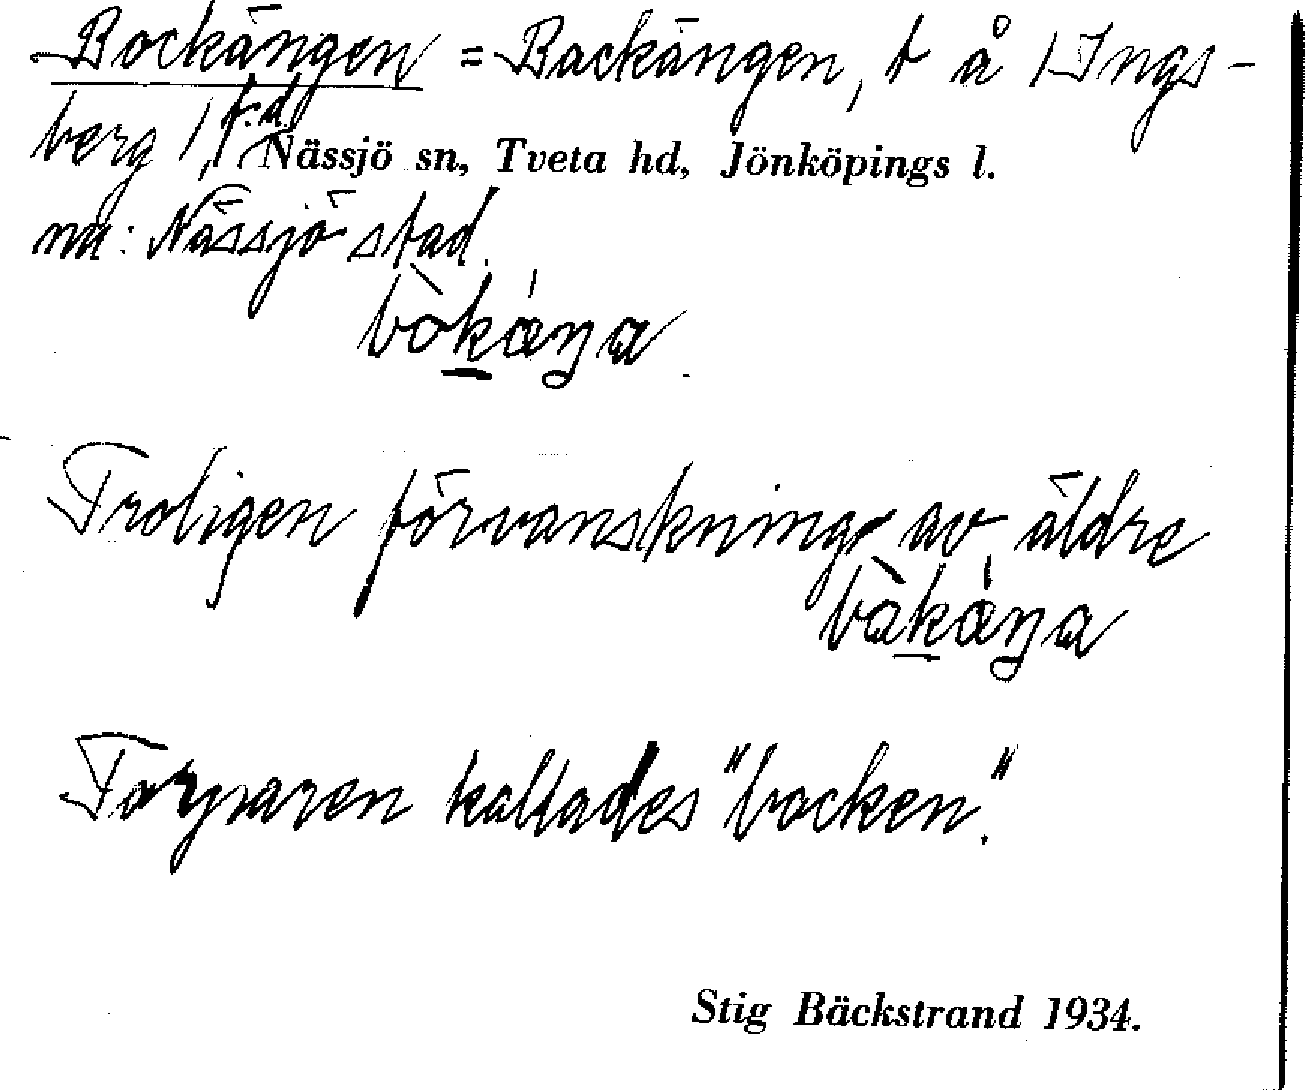 Bockängen = Backängen, t å 1 Ings-
berg 1, f.d. Nässjö sn, Tveta hd, Jönköpings l.
nu: Nässjö stad.
bòkǽŋa
Troligen förvanskning av äldre
bàkǽŋa
Torparen kallades "bocken".
Stig Bäckstrand 1934.